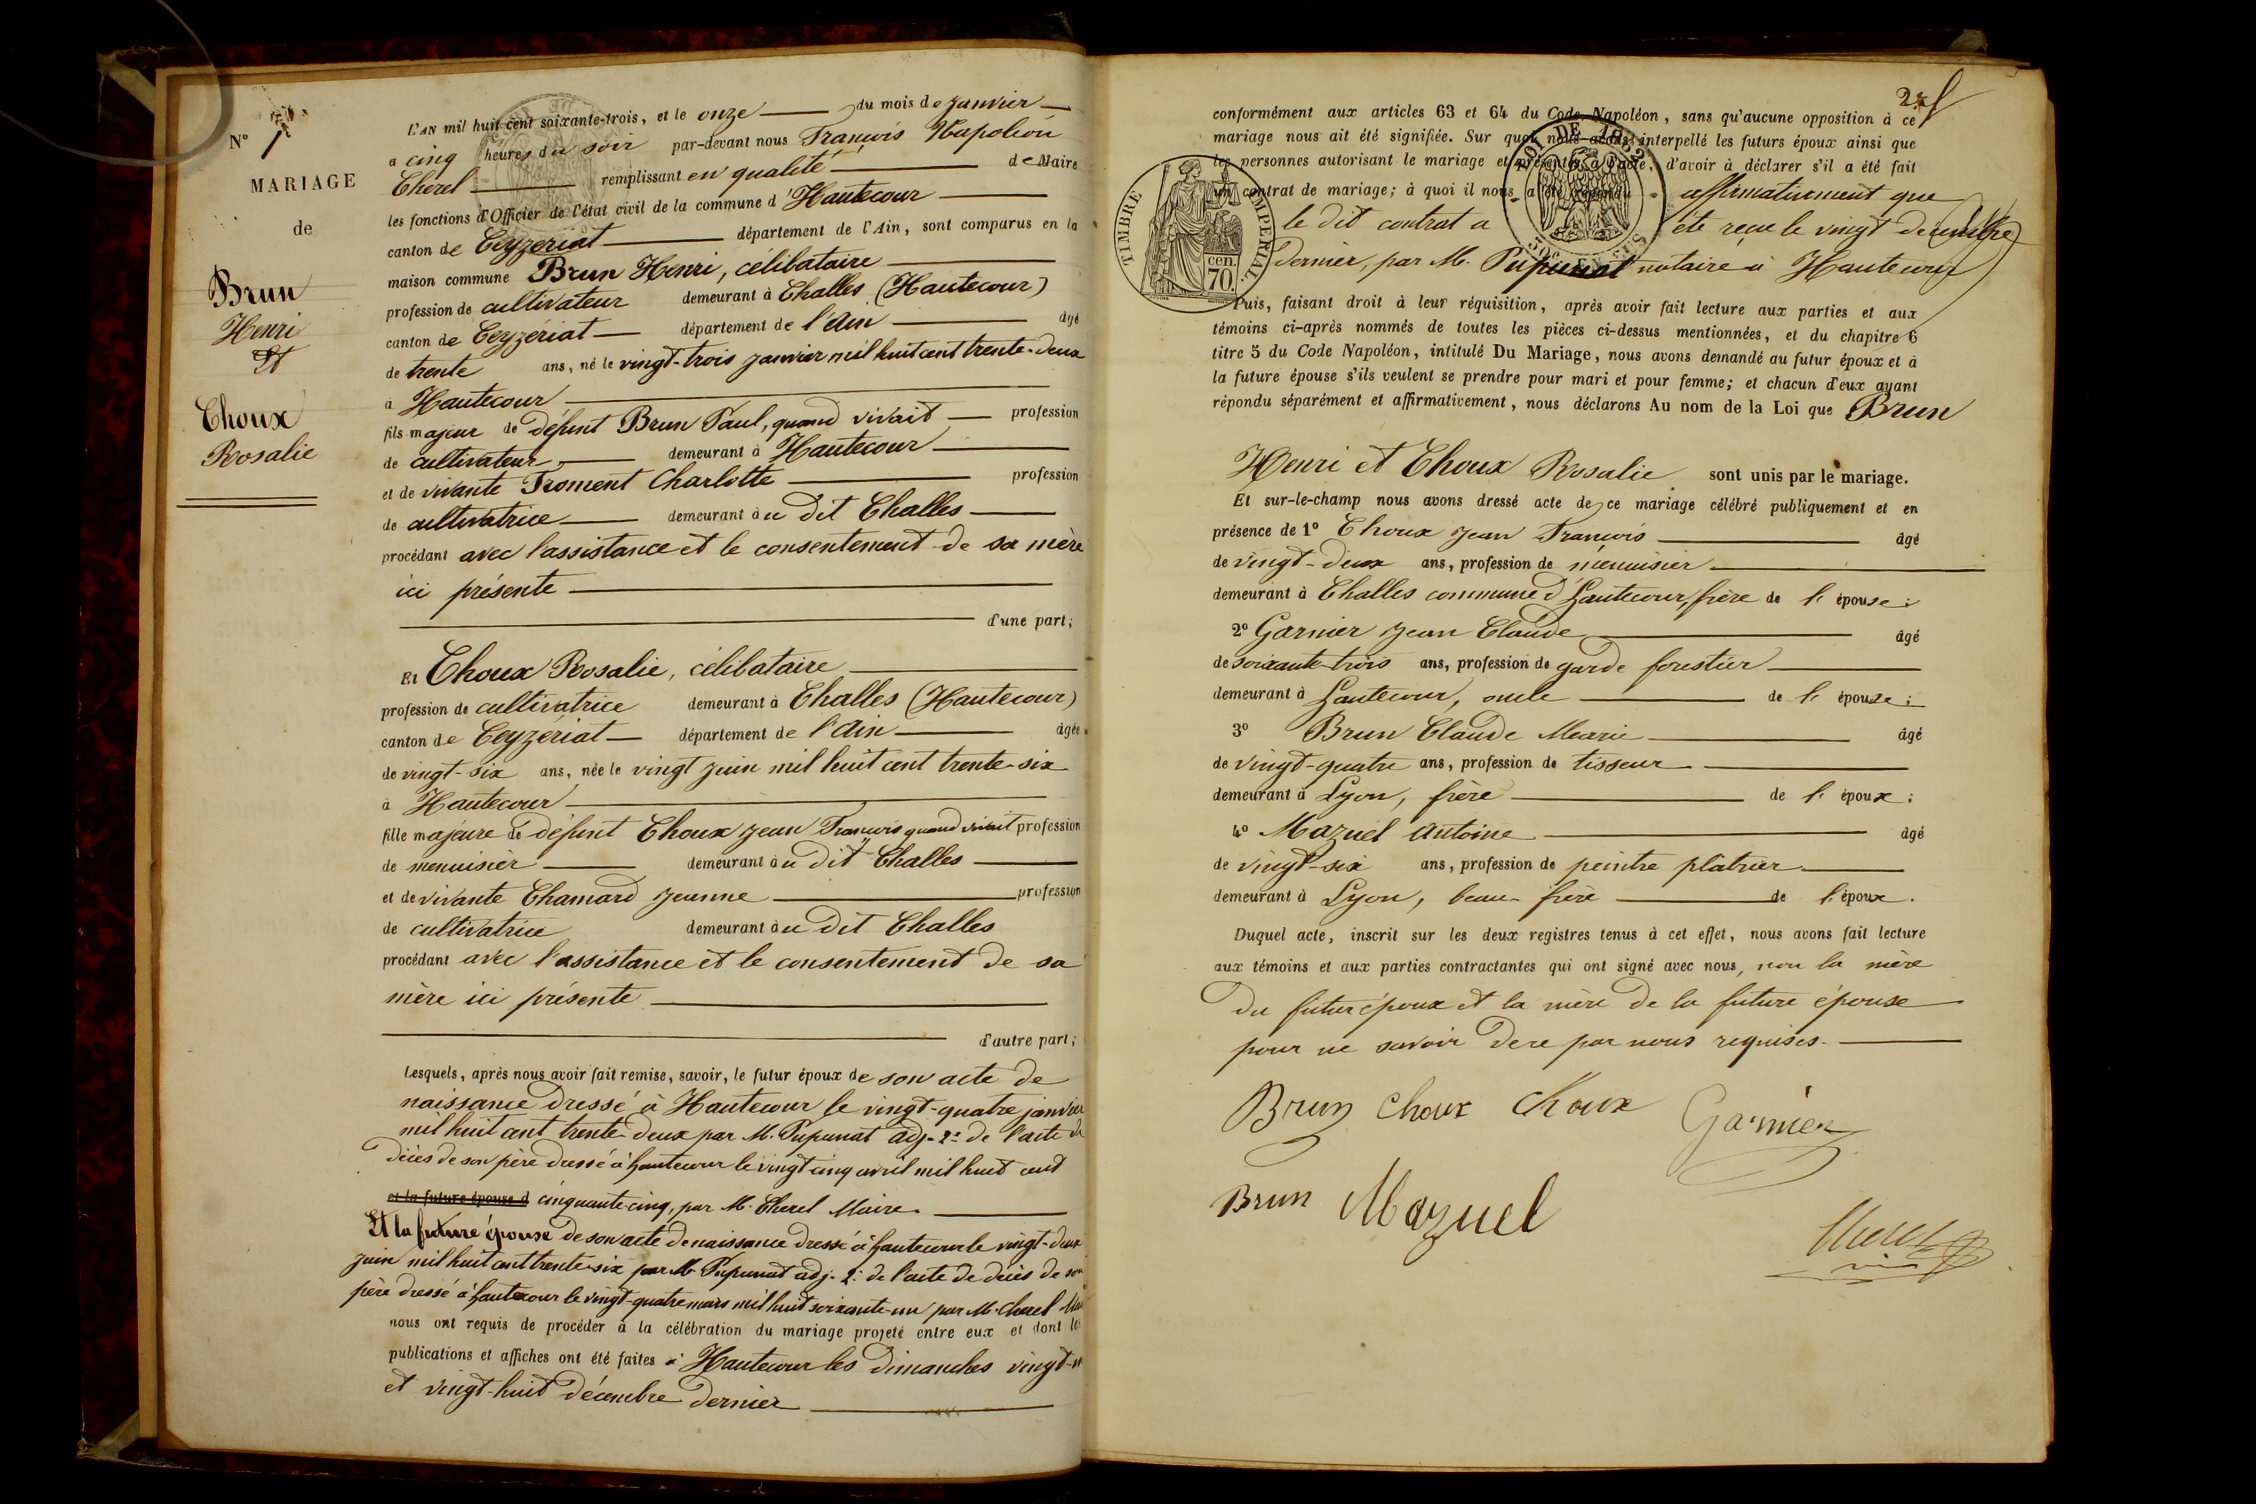 N° 1
MARIAGE
de
Brun
Henri
Et
Choux
Rosalie
L'AN mil huit cent soixante-trois, et le onze du mois de Janvier
a cinq heures du soir par-devant nous François Napoléon
Cherel remplissant en qualité de Maire
les fonctions d'Officier de l'état civil de la commune d'Hautecour
canton de Ceyzeriat département de l'Ain, sont comparus en la
maison commune Brun Henri, célibataire
profession de cultivateur demeurant à Challes (Hautecour)
canton de Ceyzériat département de l'Ain âgé
de trente ans, né le vingt-trois janvier mil huit cent trente-deux
à Hautecour
fils majeur de défunt Brun Paul, quand vivait profession
de cultivateur, demeurant à Hautecour
et de vivante Froment Charlotte profession
de cultivatrice demeurant au dit Challes
procédant avec l'assistance et le consentement de sa mère
ici présente
d'une part;
Et Choux Rosalie, célibataire
profession de cultivatrice demeurant à Challes (Hautecour)
canton de Ceyzériat département de l'Ain âgée
de vingt-six ans, née le vingt juin mil huit cent trente-six
à Hautecour
fille majeure de défunt Choux Jean François quand vivait profession
de menuisier demeurant au dit Challes
et de vivante Chamard Jeanne profession
de cultivatrice demeurant au dit Challes
procédant avec l'assistance et le consentement de sa
mère ici présente
d'autre part;
Lesquels, après nous avoir fait remise, savoir, le futur époux de son acte de
naissance dressé à Hautecour le vingt-quatre janvier
mil huit cent trente-deux par M. Pupunat adj- 2° de l'acte de
décès de son père dressé à hautecour le vingt cinq avril mil huit cent
et la future épouse d cinquante-cinq, par M. Cherel Maire.
Et la future épouse de son acte de naissance dressé à hautecour le vingt-deux
juin mil huit cent trente-six par M. Pupunat adj- 2° de l'acte de décès de son
père dressé à hautecour le vingt-quatre mars mil huit soixante-un par M. Cherel
nous ont requis de procéder à la célébration du mariage projeté entre eux et dont les
publications et affiches ont été faites à Hautecour les dimanches vingt-
et vingt-huit décembre dernier
conformément aux articles 63 et 64 du Code Napoléon, sans qu'aucune opposition à ce
mariage nous ait été signifiée. Sur quoi nous avons interpellé les futurs époux ainsi que
les personnes autorisant le mariage et présentes à l'acte, d'avoir à déclarer s'il a été fait
un contrat de mariage; à quoi il nous a été répondu affirmativement que
le dit contrat a été reçu le vingt decembre
dernier, par M. Pupunat notaire à Hautecour
TIMBRE IMPERIAL.
cen.
70.
LOI DE 1862
Puis, faisant droit à leur réquisition, après avoir fait lecture aux parties et aux
témoins ci-après nommés de toutes les pièces ci-dessus mentionnées, et du chapitre 6
titre 5 du Code Napoléon, intitulé Du Mariage, nous avons demandé au futur époux et à
la future épouse s'ils veulent se prendre pour mari et pour femme; et chacun d'eux ayant
répondu séparément et affirmativement, nous déclarons Au nom de la Loi que Brun
Henri et Choux Rosalie sont unis par le mariage.
Et sur-le-champ nous avons dressé acte de ce mariage célébré publiquement et en
présence de 1° Choux Jean François âgé
de vingt-deux ans, profession de menuisier
demeurant à Challes commune d'hautecour, frère de l'épouse;
2° Garnier Jean Claude âgé
de soixante-trois ans, profession de garde forestier
demeurant à hautecour, oncle de l'épouse;
3° Brun Claude Marie âgé
de vingt-quatre ans, profession de tisseur
demeurant à Lyon, frère de l'époux;
4° Mazuel Antoine âgé
de vingt-six ans, profession de peintre platrier
demeurant à Lyon, beau-frère de l'époux.
Duquel acte, inscrit sur les deux registres tenus à cet effet, nous avons fait lecture
aux témoins et aux parties contractantes qui ont signé avec nous, non la mère
du futur époux et la mère de la future épouse
pour ne savoir de ce par nous requises.
Brun Choux Choux Garnier
Brun Mazuel
Cherel